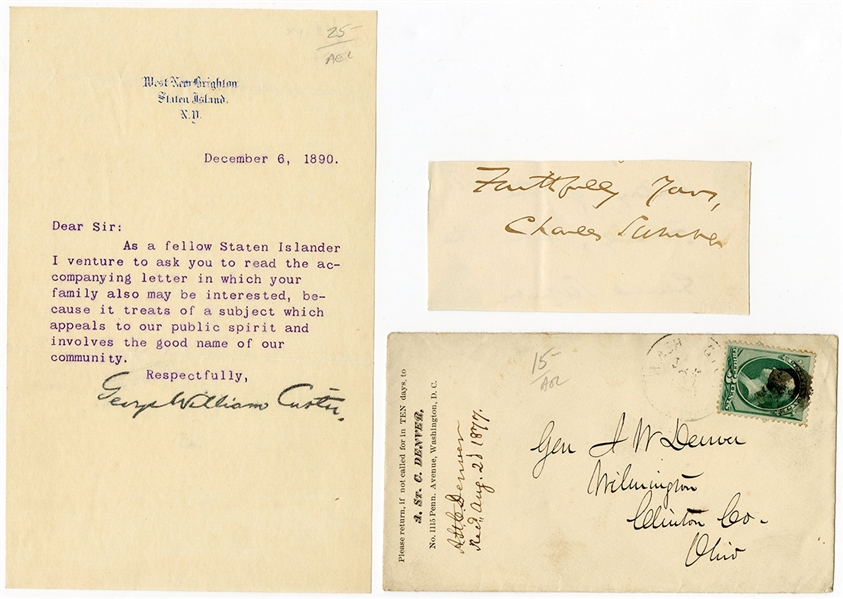 25-
AOL
West New Brighton
Staten Island.
N.Y.
December 6, 1890.
Dear Sir:
As a fellow Staten Islander
I venture to ask you to read the ac-
companying letter in which your
family also may be interested, be-
cause it treats of a subject which
appeals to our public spirit and
involves the good name of our
community.
Respectfully,
George William Curtis.
Faithfully Yours,
Charles Sumner
Please return, if not called for in TEN days, to
A. ST. C. DENVER,
No. 1115 Penn. Avenue, Washington, D. C.
A St C Denver
Recd Aug. 2d 1877.
15-
AOL
Gen J W Denver
Wilmington
Clinton Co.
Ohio